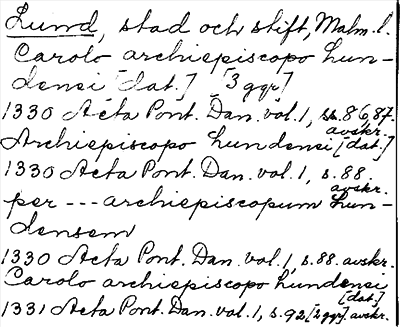 Lund, stad och stift, Malm. l.
Carolo archiepiscopo Lun-
densi [dat.] [3 ggr]
1330 Acta Pont. Dan. vol. 1, ss. 86, 87.
avskr.
Archiepiscopo Lundensi [dat.]
1330 Acta Pont. Dan. vol. 1, s. 88.
avskr.
per --- archiepiscopum Lun-
densem
1330 Acta Pont. Dan. vol. 1, s. 88. avskr.
Carolo archiepiscopo Lundensi
[dat.]
1331 Acta Pont. Dan. vol. 1, s. 92 [2 ggr]. avskr.